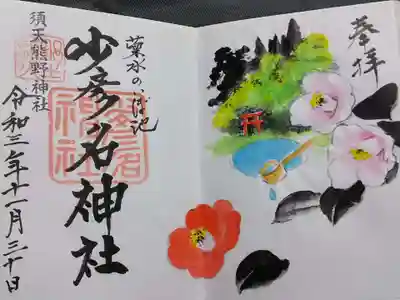 奉拝
菊水の
少彦名神社
須天熊野神社
令和三年十一月三十日